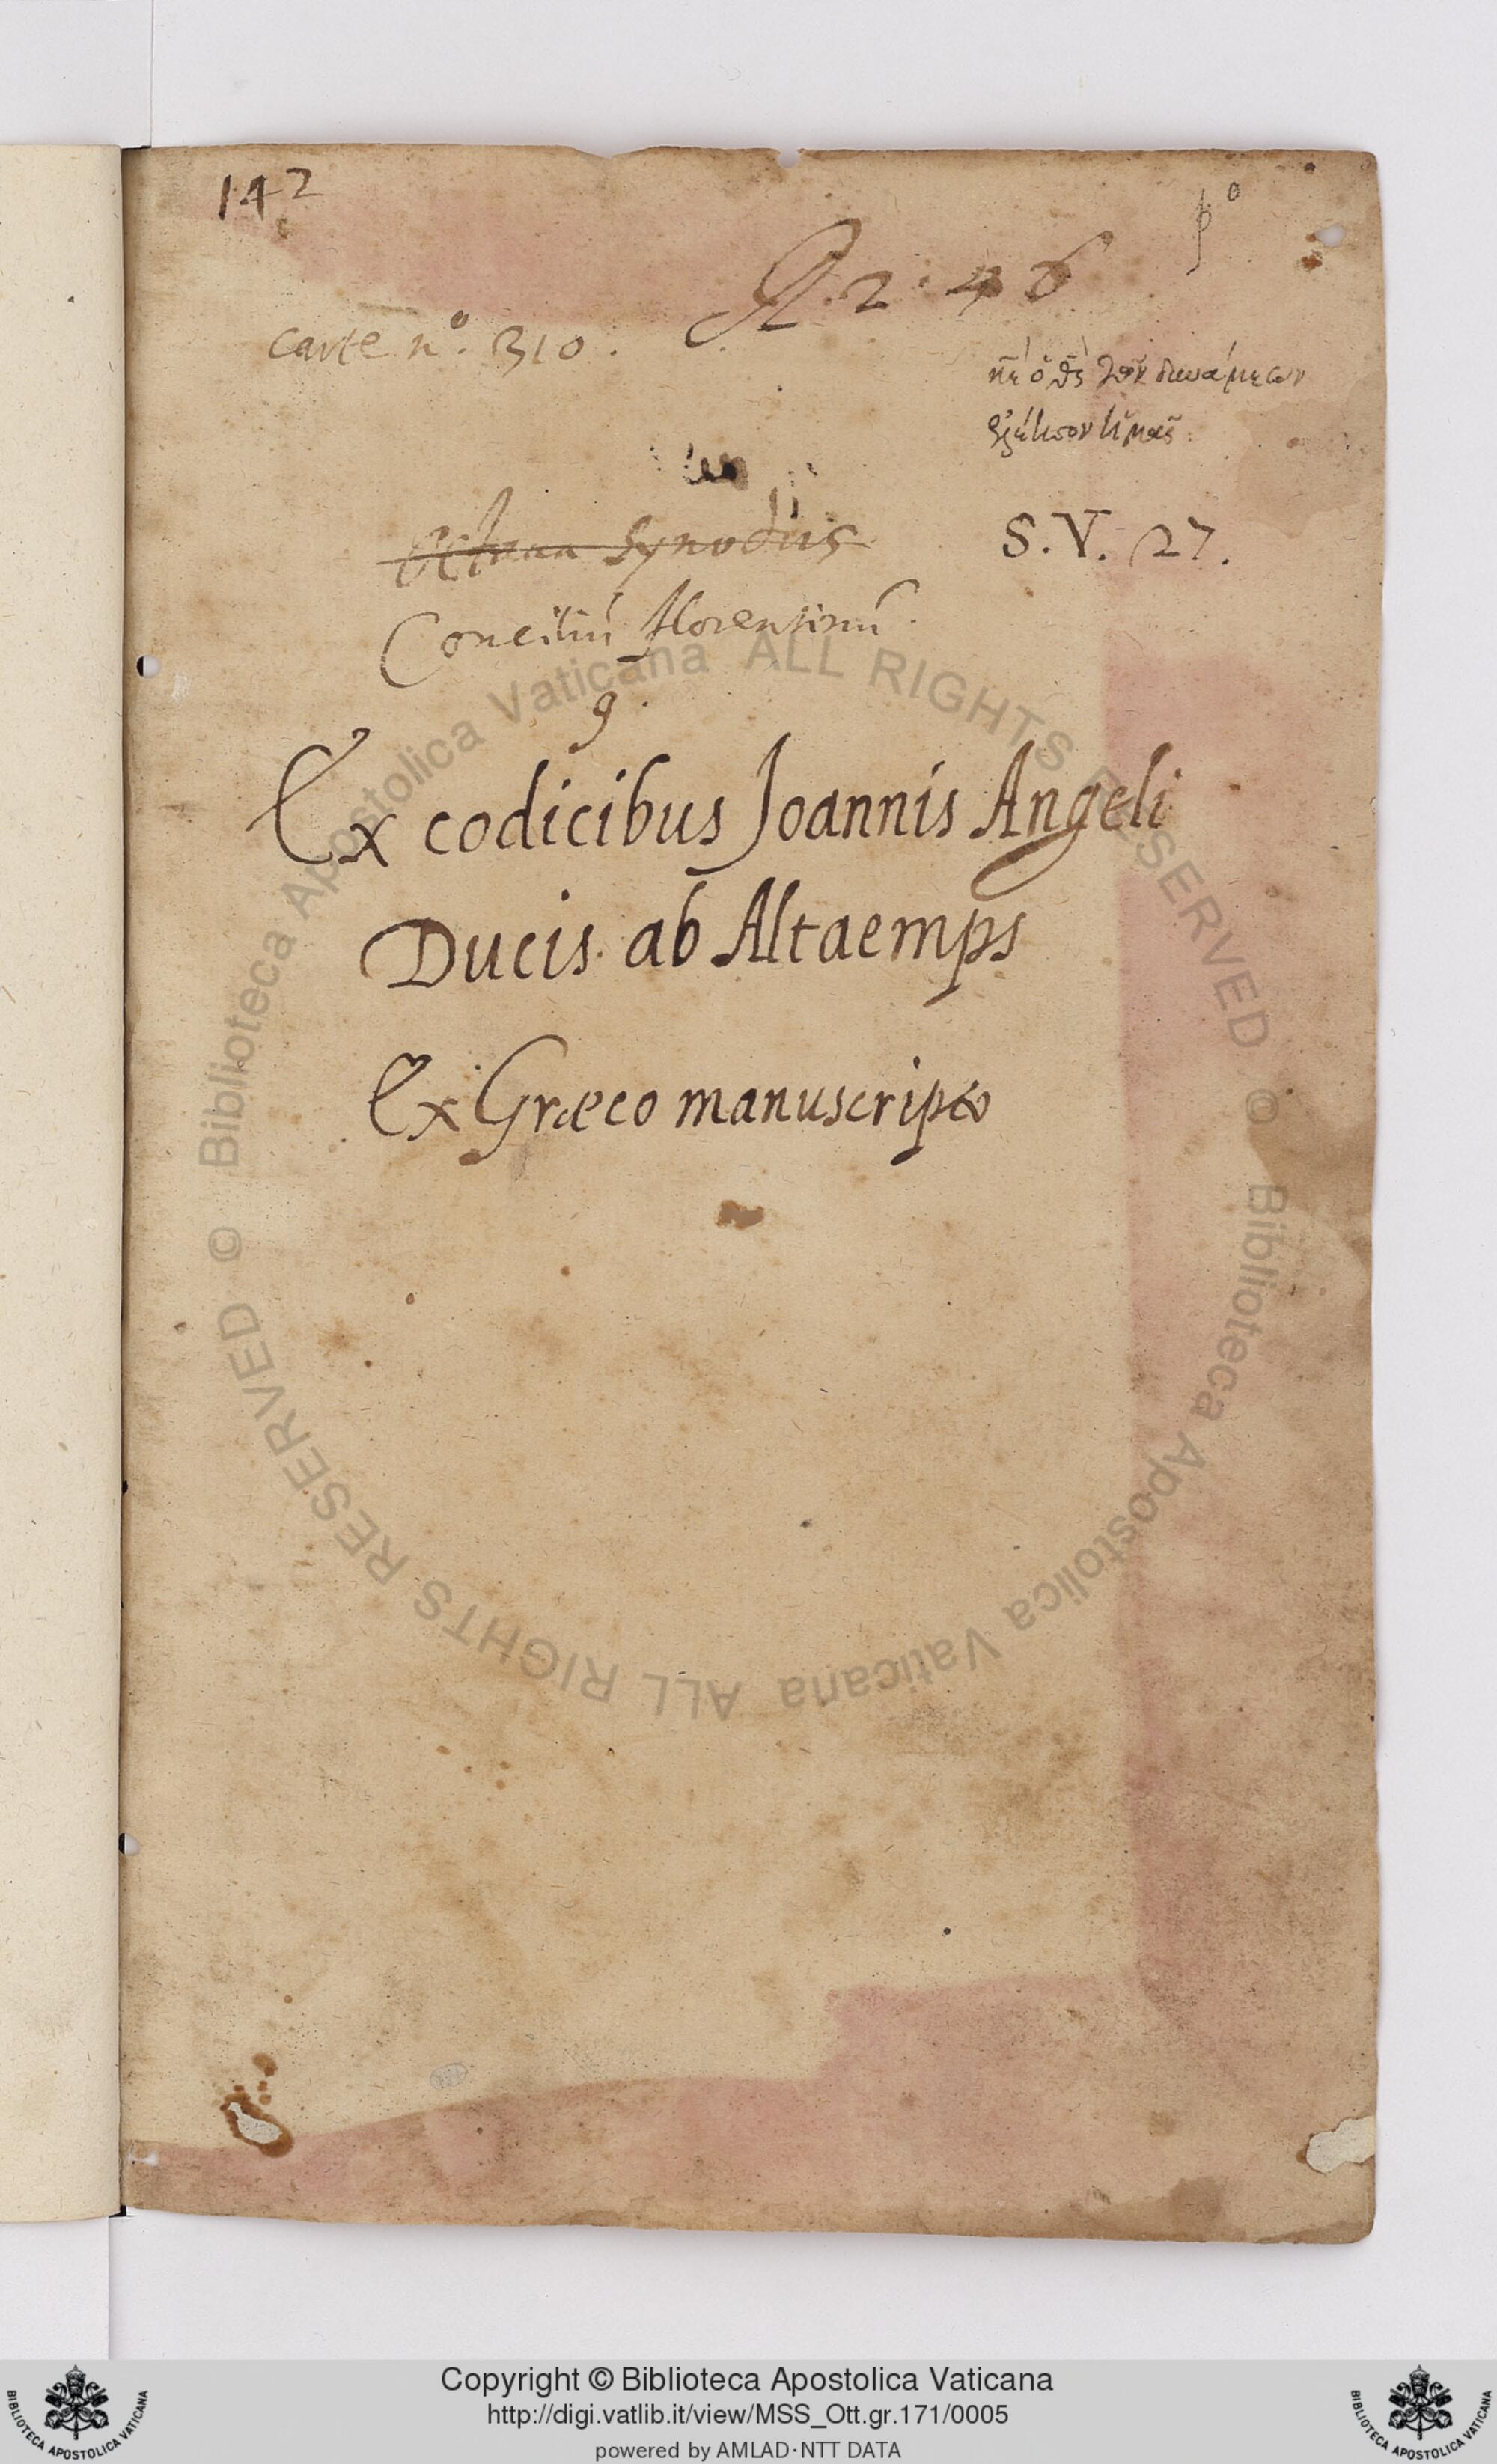 142
pº
R. 2. 46
carte nº. 310.
κε ὁ θς τῶν δυνάμεων
ἡμας
S. V. 27.
octava Synodus
Conciliū florentinū.
9.
Ex codicibus Joannis Angeli
Ducis ab Altaemps
Ex Græco manuscripto
© Biblioteca Apostolica Vaticana ALL RIGHTS RESERVED
© Biblioteca Apostolica Vaticana ALL RIGHTS RESERVED
Copyright © Biblioteca Apostolica Vaticana
http://digi.vatlib.it/view/MSS_Ott.gr.171/0005
powered by AMLAD·NTT DATA
BIBLIOTECA APOSTOLICA VATICANA
BIBLIOTECA APOSTOLICA VATICANA